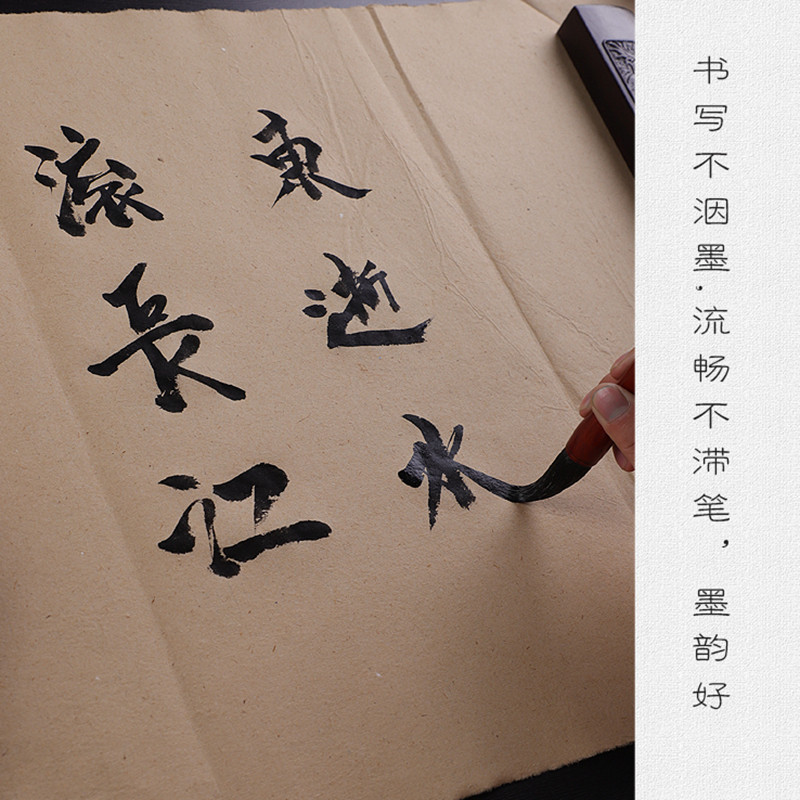 滚長江
東逝水
书写不洇墨，流畅不滞笔，墨韵好